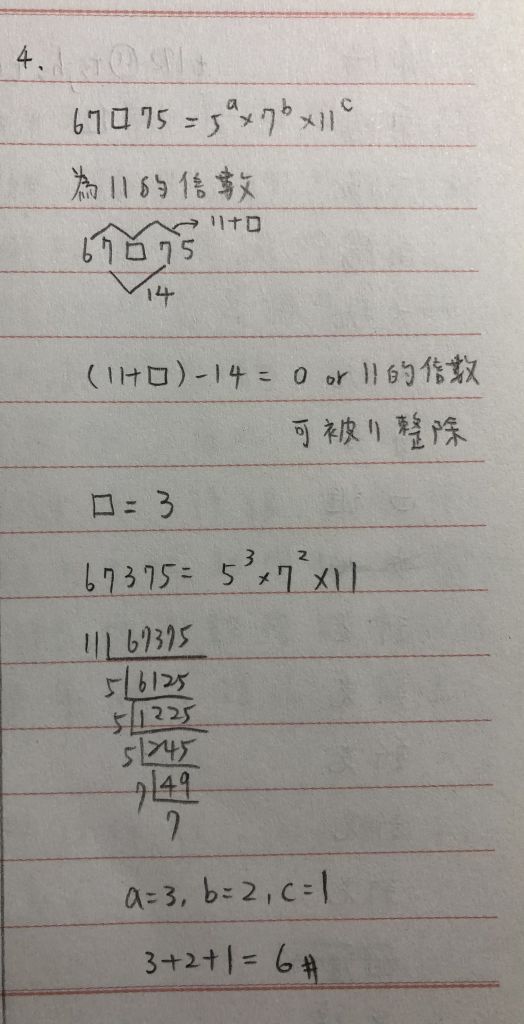 4.
67□75 = 5^a × 7^b × 11^c
為 11 的倍數
11+□
67□75
14
(11+□) - 14 = 0 or 11 的倍數
可被 11 整除
□ = 3
67375 = 5^3 × 7^2 × 11
11 67375
5 6125
5 1225
5 245
7 49
7
a=3, b=2, c=1
3+2+1 = 6 #